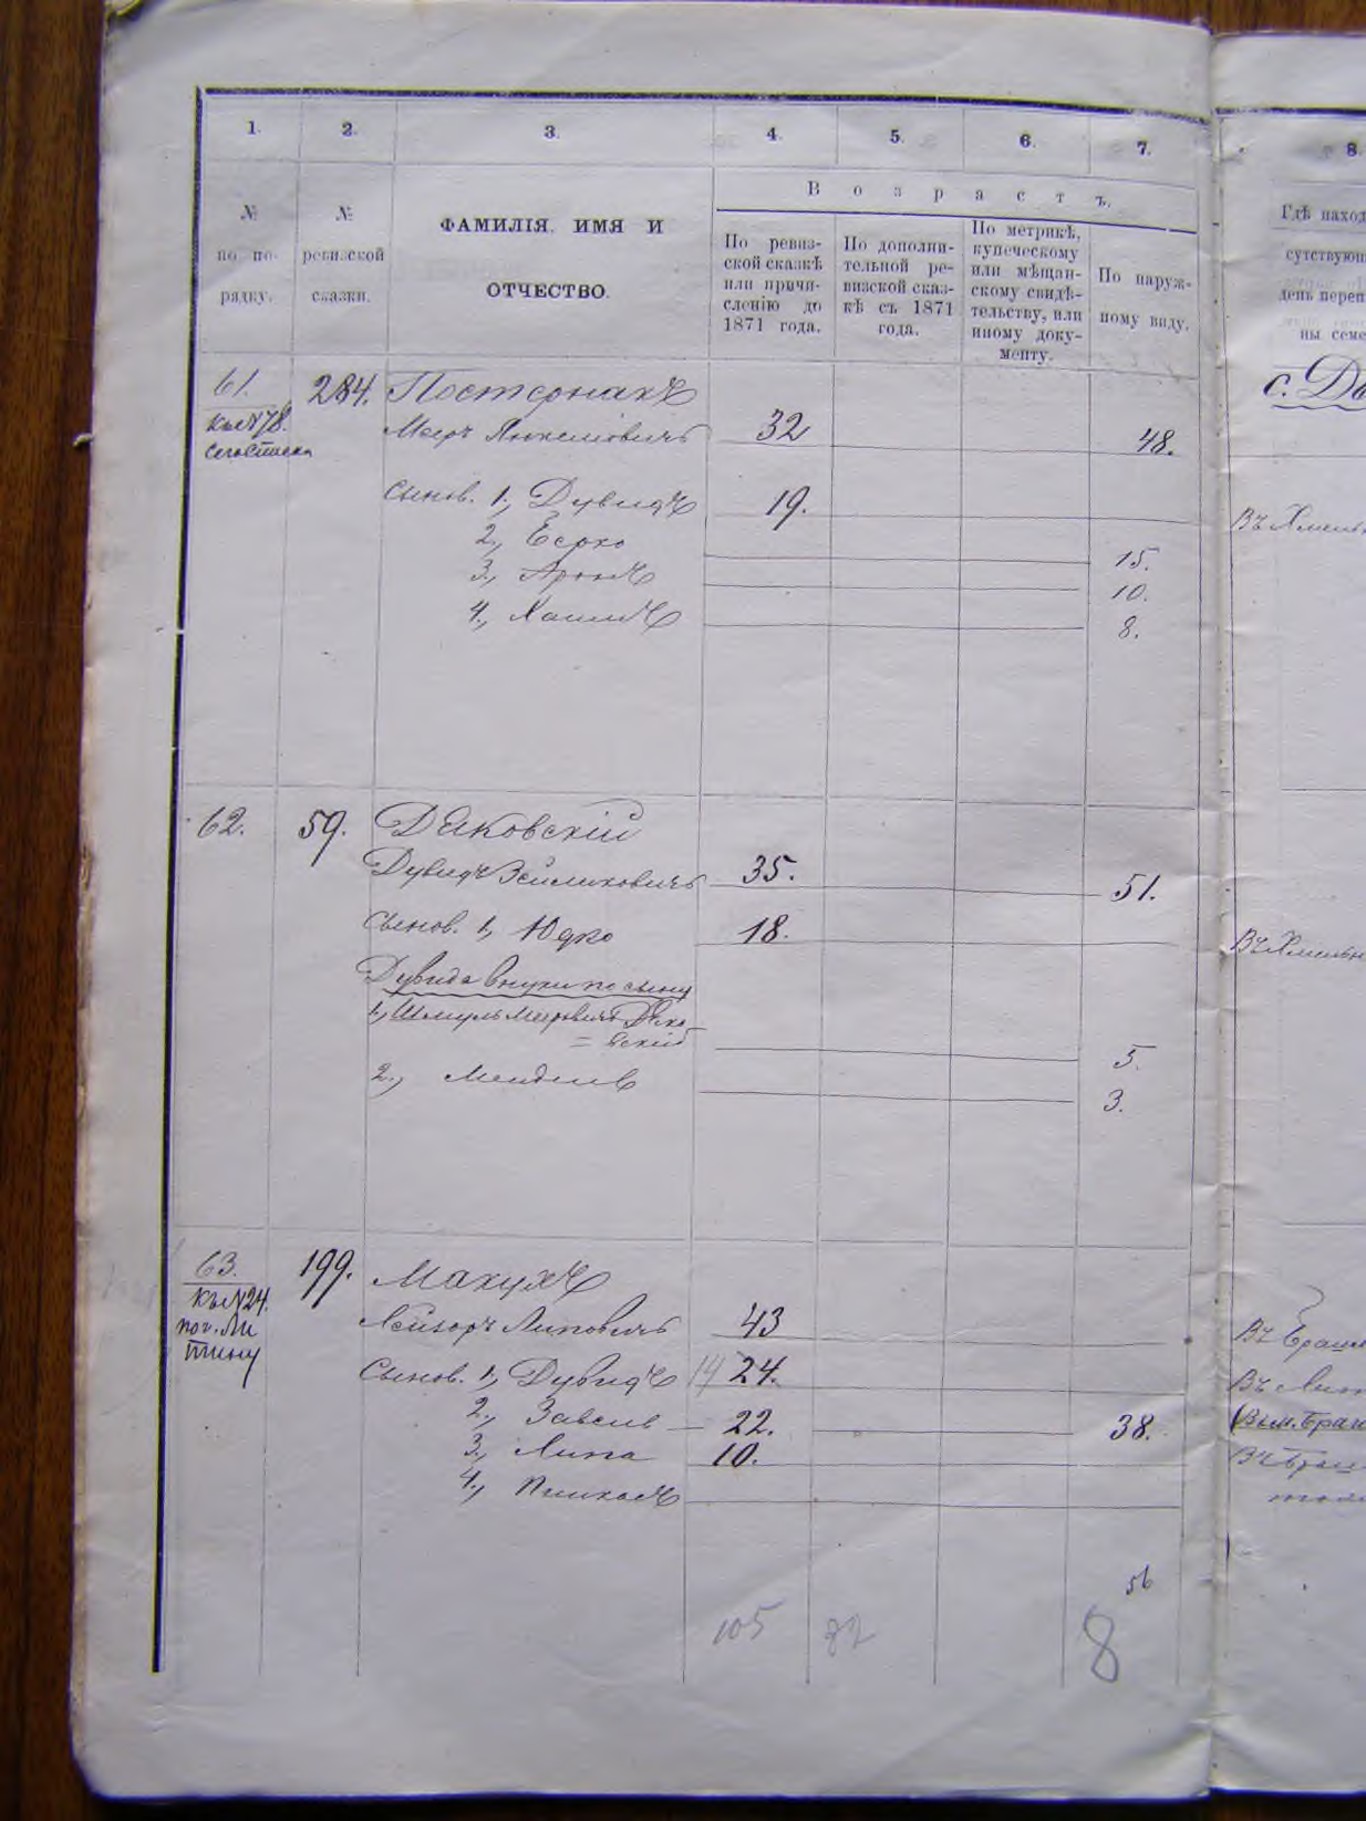 1. 2. 3. 4. 5. 6. 7. 8.
№ по по-рядку.
№ ревизской сказки.
ФАМИЛІЯ, ИМЯ И
ОТЧЕСТВО.
Возрастъ.
По ревиз-
ской сказкѣ
или причи-
сленію до
1871 года.
По дополни-
тельной ре-
визской сказ-
кѣ съ 1871
года.
По метрикѣ,
купеческому
или мѣщан-
скому свидѣ-
тельству, или
иному доку-
менту.
По наруж-
ному виду.
Гдѣ наход
сутствующ
день переп
ны семе
61. 284. Постернакъ
къ № 78.
Мееръ 32 48.
Сынов. 1, Дувидъ 19.
Въ Хмельн
2, Берко 15.
3, Аронъ 10.
4, Хаимъ 8.
62. 59. Дяковскій
Дувидъ Зейликовичъ 35. 51.
Сынов. 1, Юдко 18.
Въ Хмельн
Дувида внуки по сыну
1, Шмуль Мееровичъ Дяко
=вскій 5.
2, Мендель 3.
63. 199. Макухъ
къ № 24.
по г. Ли
тину
Лейзоръ Липовичъ 43
Сынов. 1, Дувидъ 14 24.
2, Завель 22. 38.
3, Липа 10.
4, Пинхасъ
56
105 82 8